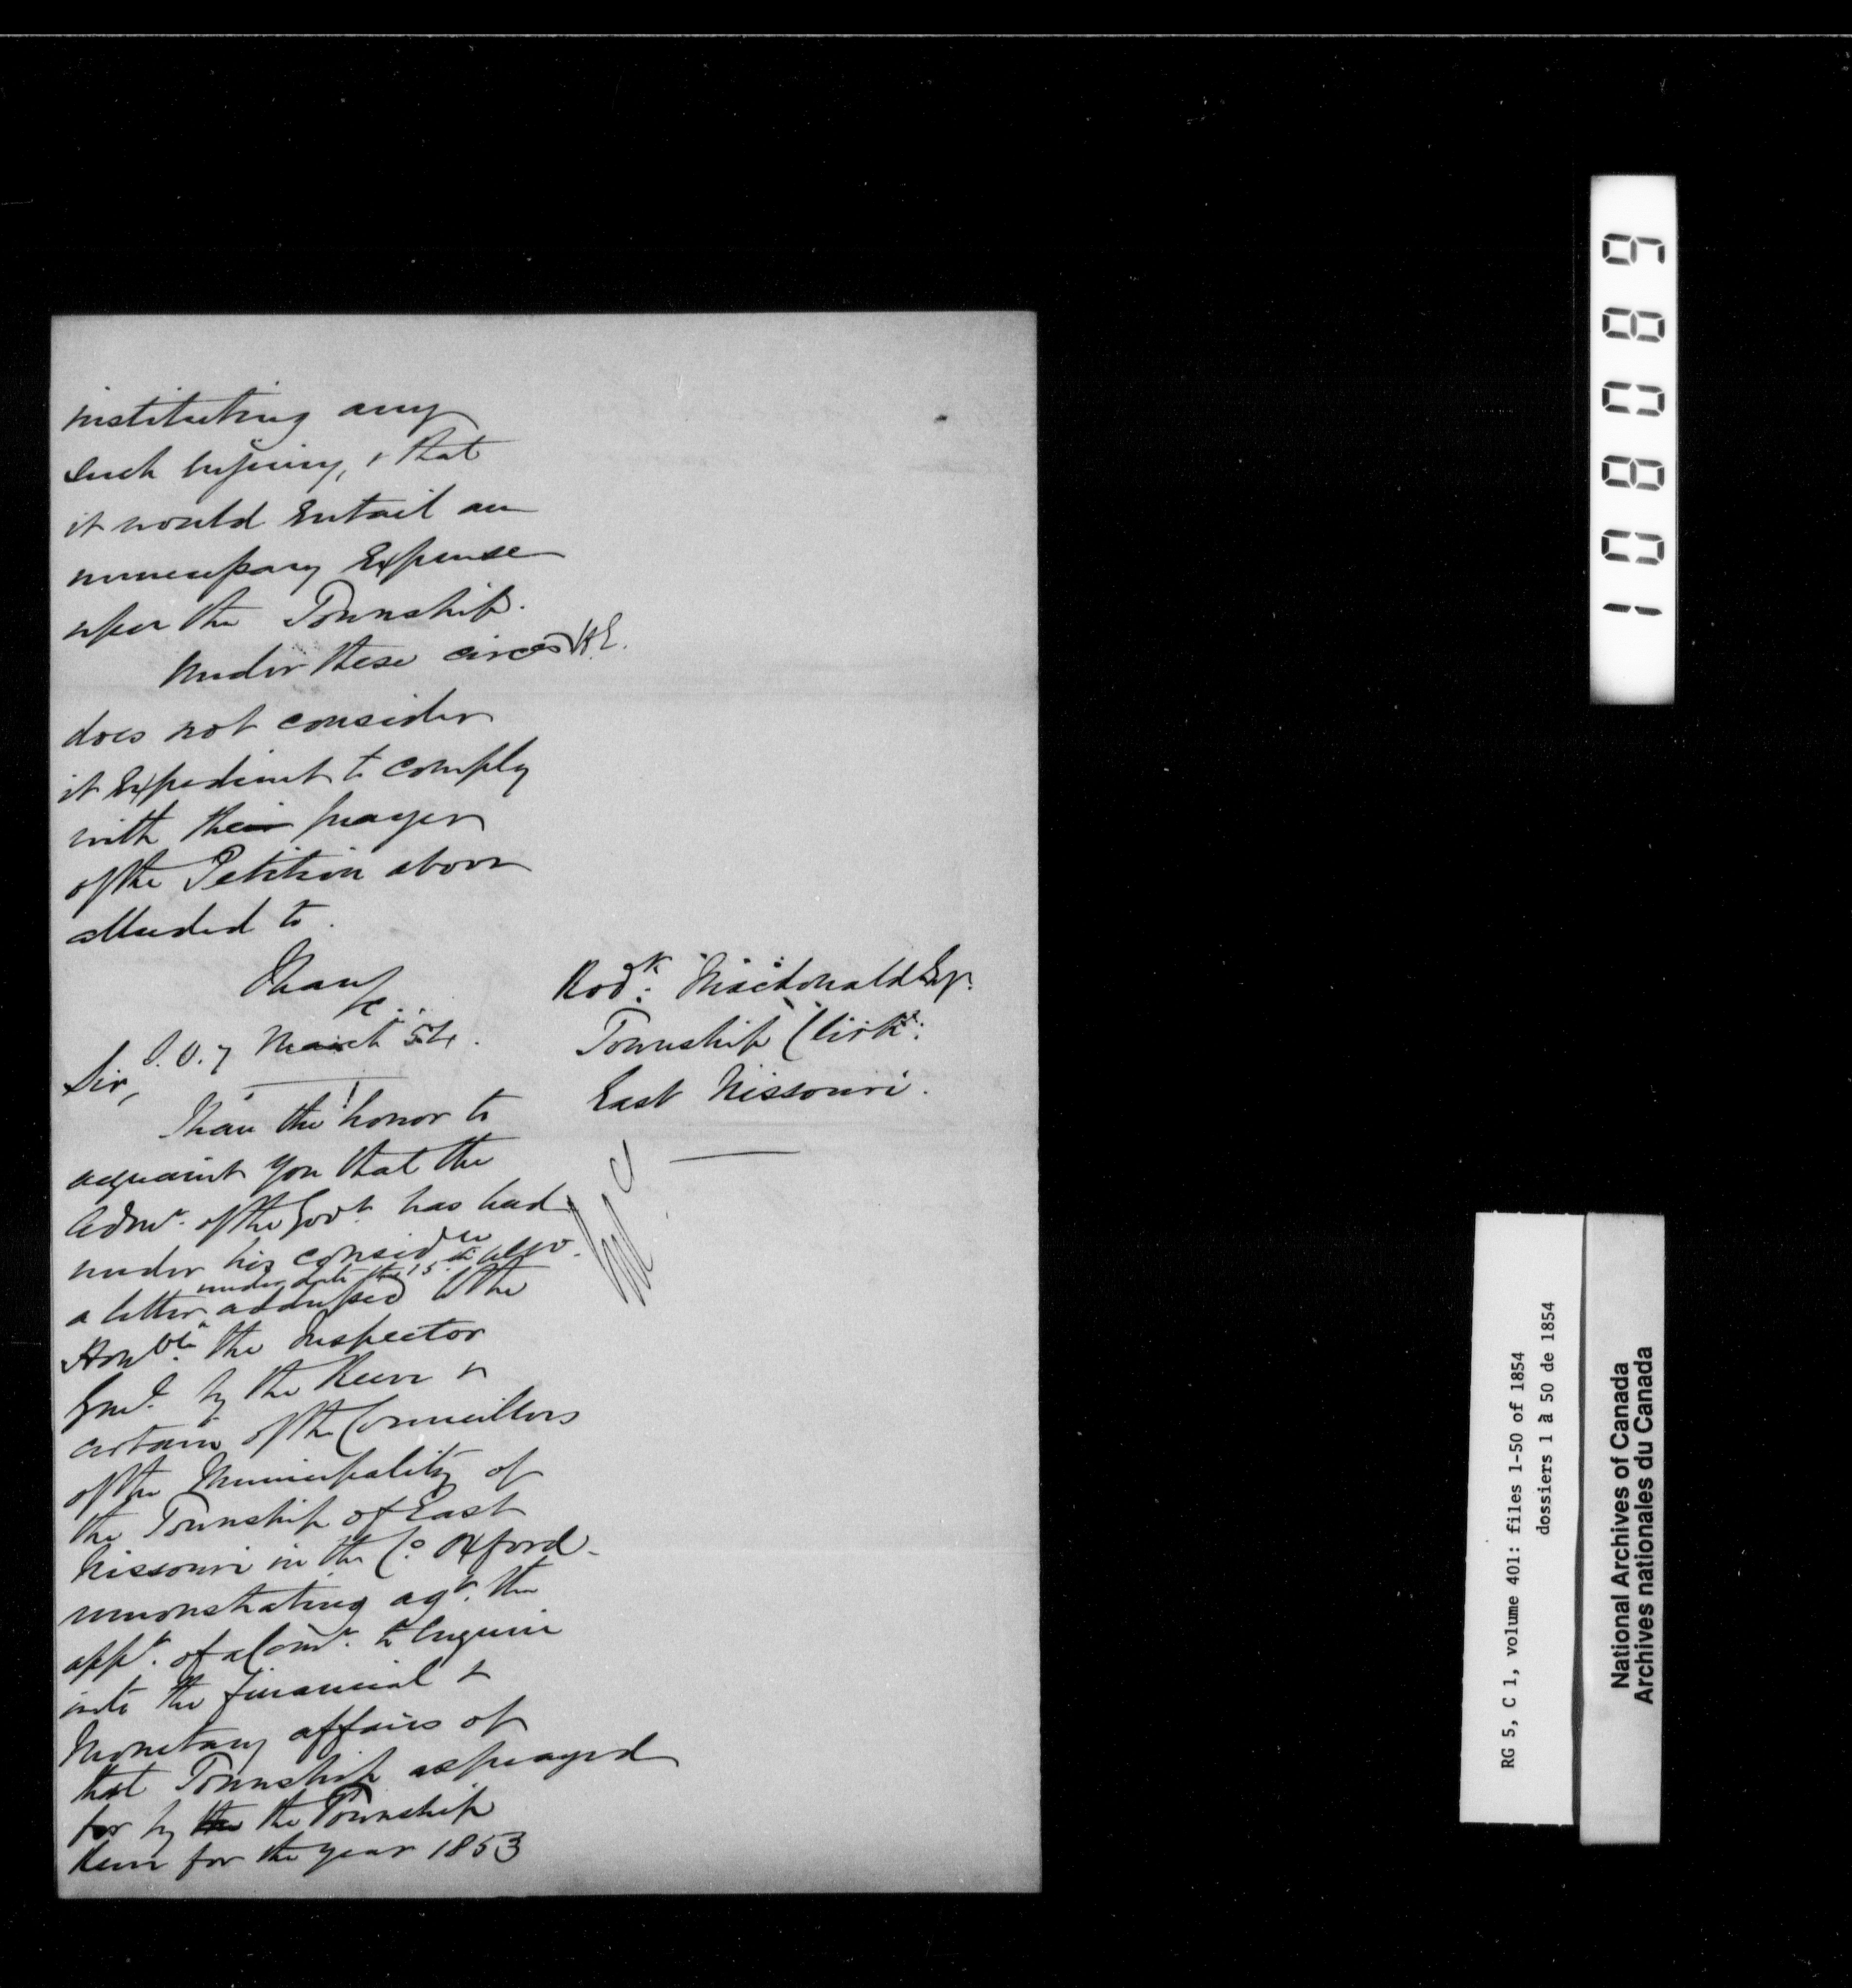 instituting any
such enquiry, & that
it would Entail an
unnecessary Expense
upon the Township.
Under these circes H.E.
does not consider
it Expedient to comply
with the prayer
of the Petition above
alluded to.
I have
&c..
S.O. 7 March 54.
Sir,
I have the honor to
acquaint you that the
Admr. of the Govt. has had
under his considn
under date the 15
a letter addressed to the
Honble. the Inspector
Genl. by the Reeve &
certain of the Councillors
of the Municipality of
the Township of East
Nissouri in the Co. Oxford
remonstrating agt. the
appt. of a Comn. to Enquire
into the financial &
Monetary affairs of
that Township as prayed
for by the the Township
Reeve for the year 1853
Rodk. Macdonald Esqr.
Township Clerk.
East Nissouri.
108089
RG 5, C 1, volume 401: files 1-50 of 1854
dossiers 1 à 50 de 1854
National Archives of Canada
Archives nationales du Canada